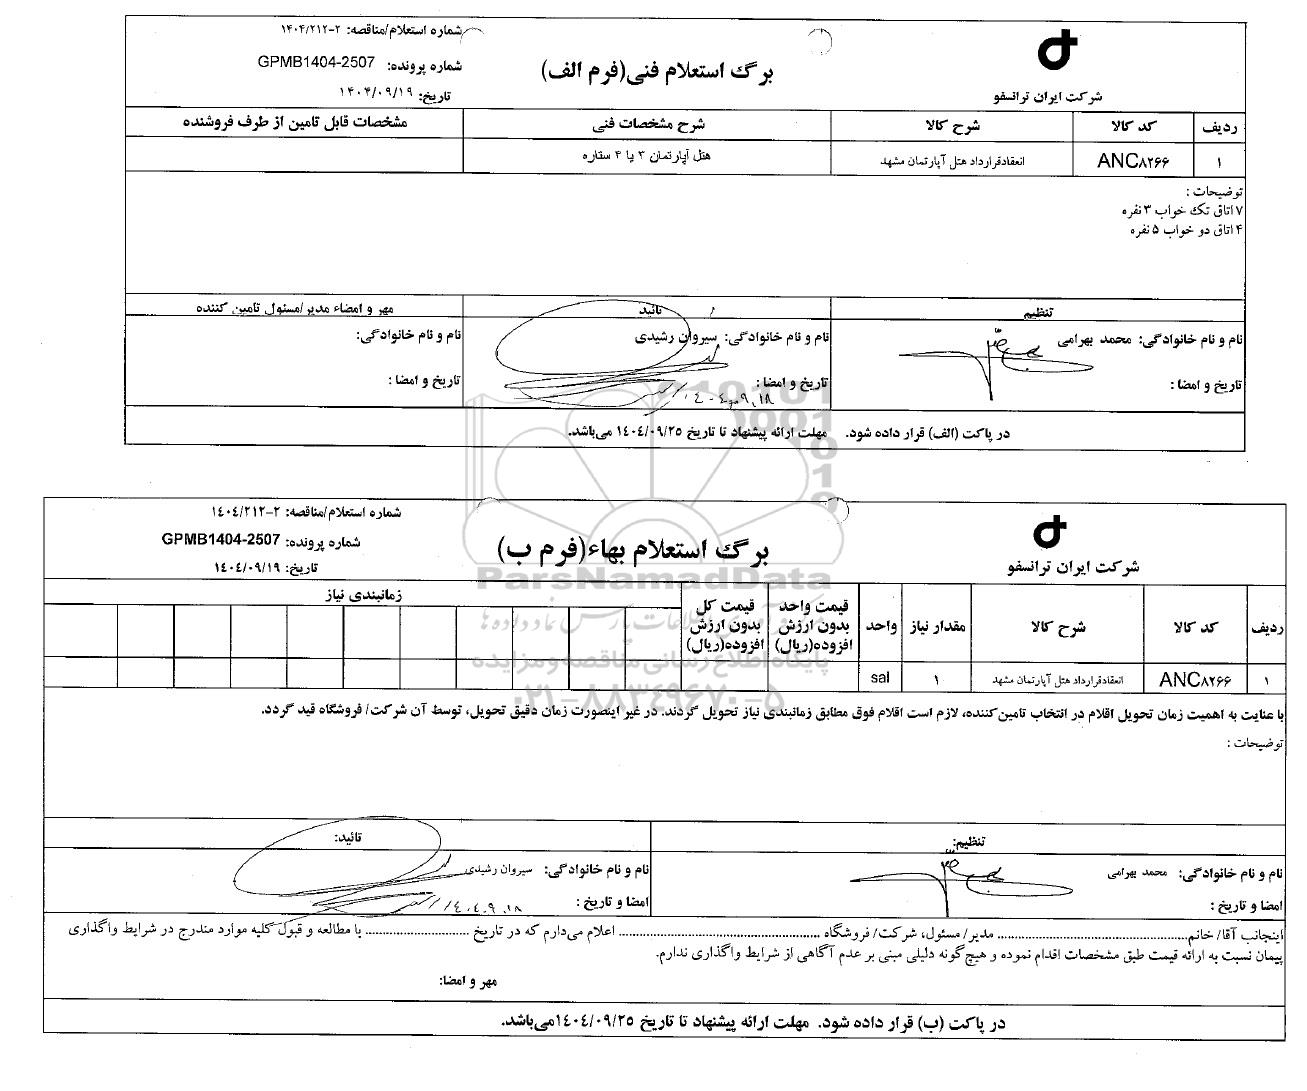 شماره استعلام/مناقصه: ۲-۱۴۰۴/۲۱۲
برگ استعلام فنی(فرم الف)
شماره پرونده: GPMB1404-2507
شرکت ایران ترانسفو
تاریخ: ۱۴۰۴/۰۹/۱۹
ردیف کد کالا شرح کالا شرح مشخصات فنی مشخصات قابل تامین از طرف فروشنده
۱ ANC۸۲۶۶ انعقادقرارداد هتل آپارتمان مشهد هتل آپارتمان ۳ یا ۴ ستاره
توضیحات :
۷ اتاق تک خواب ۳نفره
۴ اتاق دو خواب ۵ نفره
تنظیم تائید مهر و امضاء مدیر/مسئول تامین کننده
نام و نام خانوادگی: محمد بهرامی نام و نام خانوادگی: سیروان رشیدی نام و نام خانوادگی:
تاریخ و امضا : تاریخ و امضا : تاریخ و امضا :
در پاکت (الف) قرار داده شود. مهلت ارائه پیشنهاد تا تاریخ ۱۴۰۴/۰۹/۲۵ می‌باشد.
شماره استعلام/مناقصه: ۲-۱۴۰۴/۲۱۲
برگ استعلام بهاء(فرم ب)
شماره پرونده: GPMB1404-2507
شرکت ایران ترانسفو
تاریخ: ۱۴۰۴/۰۹/۱۹
ParsNamadData
ردیف کد کالا شرح کالا مقدار نیاز واحد قیمت واحد بدون ارزش افزوده(ریال) قیمت کل بدون ارزش افزوده(ریال) زمانبندی نیاز
پایگاه اطلاع رسانی مناقصه و مزایده
۱ ANC۸۲۶۶ انعقادقرارداد هتل آپارتمان مشهد ۱ sal
۰۲۱-۸۸۳۴۹۶۷۰-۵
با عنایت به اهمیت زمان تحویل اقلام در انتخاب تامین‌کننده، لازم است اقلام فوق مطابق زمانبندی نیاز تحویل گردند. در غیر اینصورت زمان دقیق تحویل، توسط آن شرکت/ فروشگاه قید گردد.
توضیحات :
تنظیم: تائید:
نام و نام خانوادگی: محمد بهرامی نام و نام خانوادگی: سیروان رشیدی
امضا و تاریخ : امضا و تاریخ :
اینجانب آقا/ خانم................ مدیر/ مسئول، شرکت/ فروشگاه ................ اعلام می‌دارم که در تاریخ ................ با مطالعه و قبول کلیه موارد مندرج در شرایط واگذاری
پیمان نسبت به ارائه قیمت طبق مشخصات اقدام نموده و هیچ‌گونه دلیلی مبنی بر عدم آگاهی از شرایط واگذاری ندارم.
مهر و امضا:
در پاکت (ب) قرار داده شود. مهلت ارائه پیشنهاد تا تاریخ ۱۴۰۴/۰۹/۲۵می‌باشد.